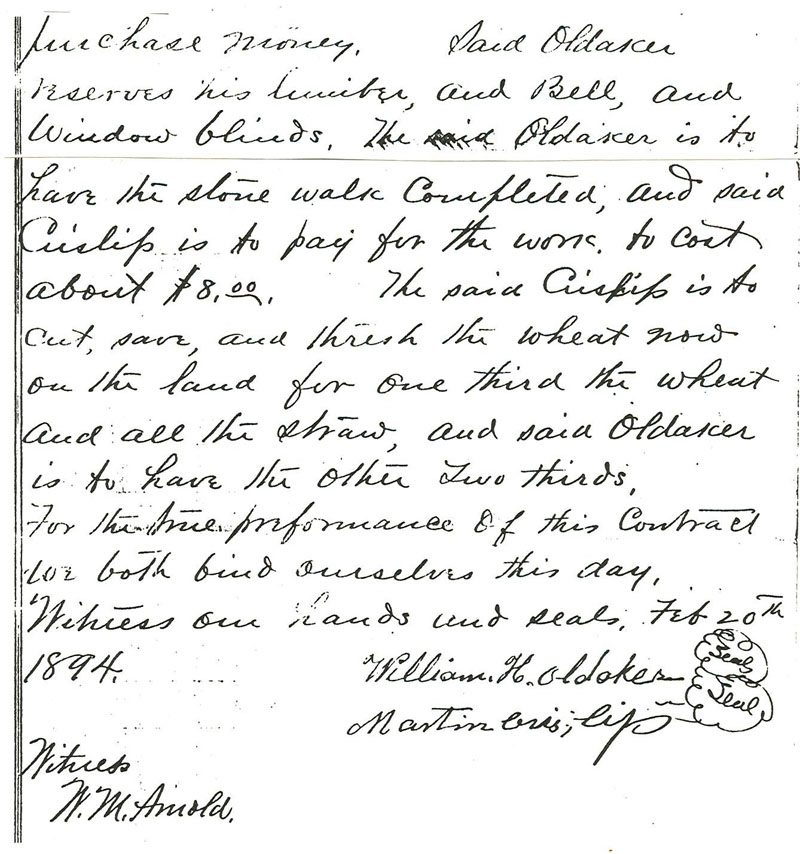 purchase money. Said Oldaker
reserves his lumber, and Bell, and
Window blinds. The said Oldaker is to
have the stone walk Completed, and said
Crislip is to pay for the work. to cost
about $8.00. The said Crislip is to
cut, save, and thresh the wheat now
on the land for one third the wheat
and all the straw, and said Oldaker
is to have the other Two thirds.
For the true preformance of this Contract
we both bind ourselves this day.
Witness our hands und seals. Feb 20th
1894. William. H. Oldaker Seal
Martin Crislip Seal
Witness
W. M. Arnold.